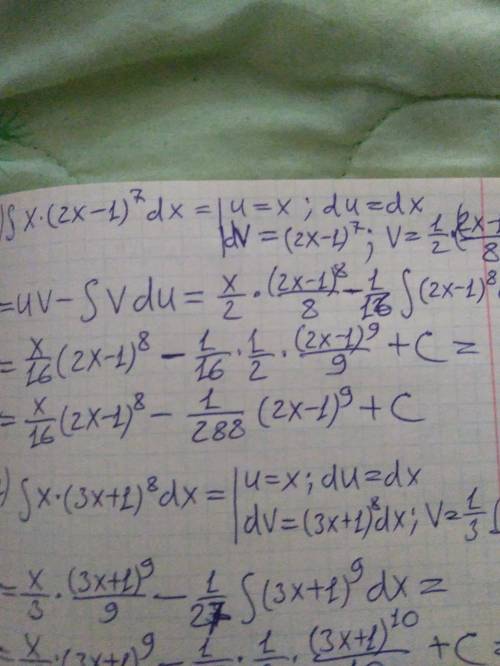 )∫x·(2x-1)⁷dx = | u = x ; du = dx
| dV = (2x-1)⁷; V = 1/2·(2x-1/8
= uV - ∫Vdu = x/2 · (2x-1)⁸/8 - 1/16 ∫(2x-1)⁸
= x/16 (2x-1)⁸ - 1/16 · 1/2 · (2x-1)⁹/9 + C =
= x/16 (2x-1)⁸ - 1/288 (2x-1)⁹ + C
)∫x·(3x+1)⁸dx = | u = x ; du = dx
| dV = (3x+1)⁸dx; V = 1/3
= x/3 · (3x+1)⁹/9 - 1/27 ∫(3x+1)⁹dx =
= x/ · (3x+1)⁹ - 1/ · 1/ · (3x+1)¹⁰ + C =